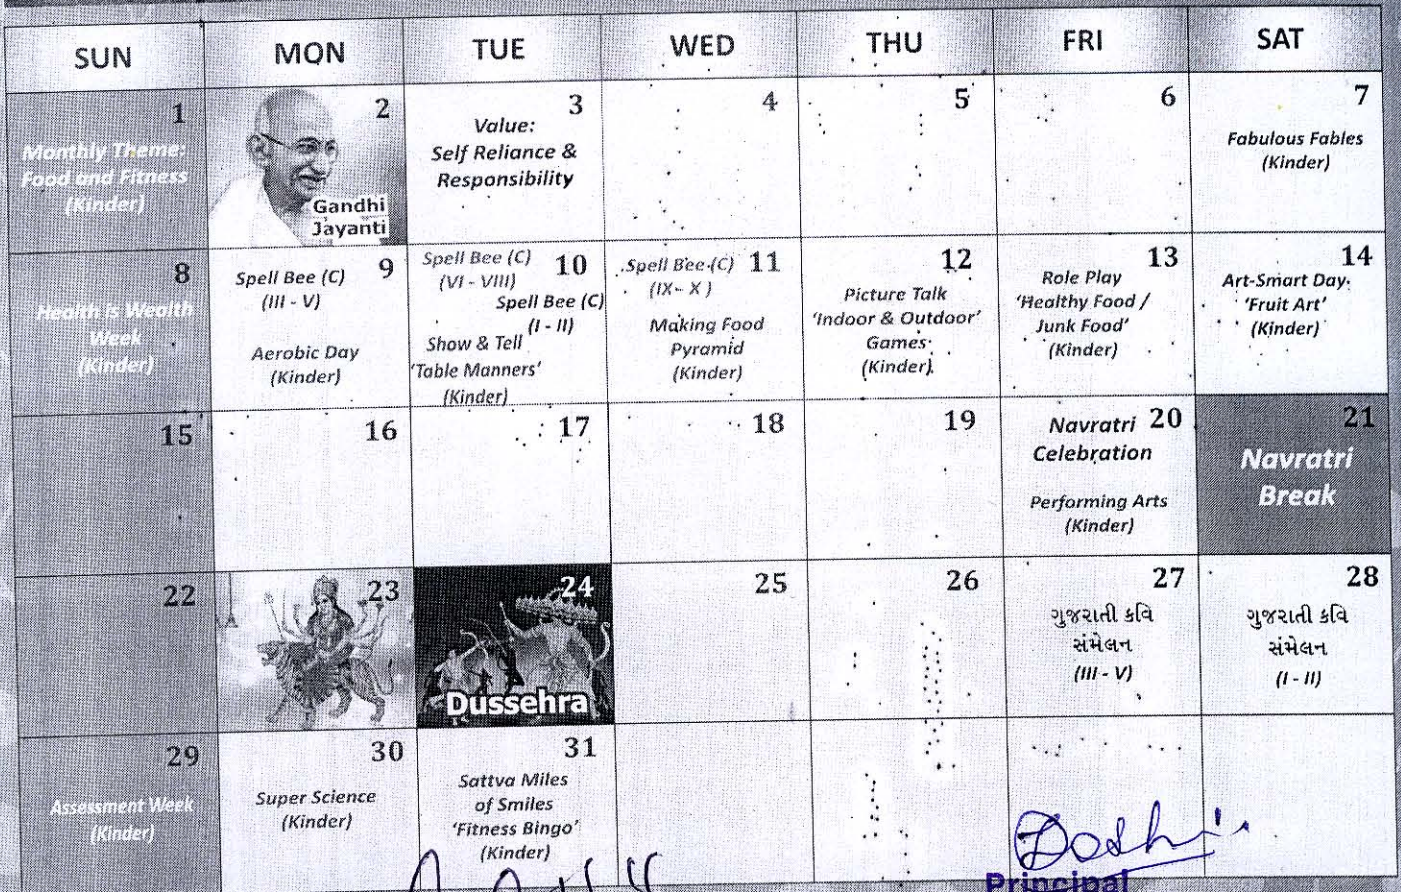 SUN MON TUE WED THU FRI SAT
1
Monthly Theme:
Food and Fitness
(Kinder)
2
Gandhi
Jayanti
3
Value:
Self Reliance &
Responsibility
4
5
6
7
Fabulous Fables
(Kinder)
8
Health is Wealth
Week
(Kinder)
9
Spell Bee (C)
(III - V)
Aerobic Day
(Kinder)
10
Spell Bee (C)
(VI - VIII)
Spell Bee (C)
(I - II)
Show & Tell
'Table Manners'
(Kinder)
11
Spell Bee (C)
(IX - X)
Making Food
Pyramid
(Kinder)
12
Picture Talk
'Indoor & Outdoor'
Games
(Kinder)
13
Role Play
'Healthy Food /
Junk Food'
(Kinder)
14
Art-Smart Day
'Fruit Art'
(Kinder)
15
16
17
18
19
20
Navratri
Celebration
Performing Arts
(Kinder)
21
Navratri
Break
22
23
24
Dussehra
25
26
27
ગુજરાતી કવિ
સંમેલન
(III - V)
28
ગુજરાતી કવિ
સંમેલન
(I - II)
29
Assessment Week
(Kinder)
30
Super Science
(Kinder)
31
Sattva Miles
of Smiles
'Fitness Bingo'
(Kinder)
Principal